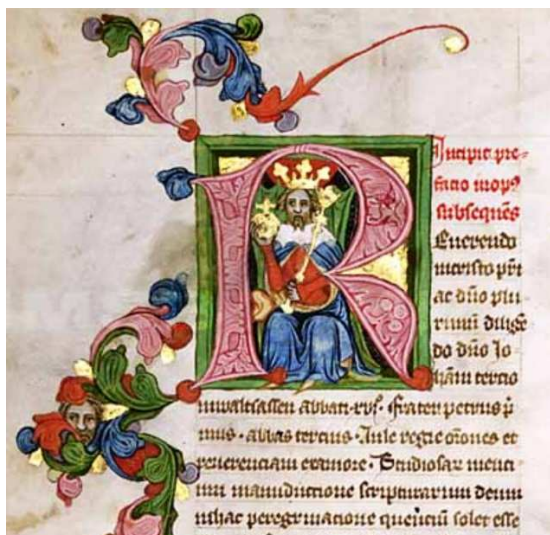 Incipit pre-
facio in opꝰ
subsequēs
R
Euerendo
in cristo pr̄i
ac dn̄o plu
rimū diligē
do dn̄o Io
hāni tercio
in waltsassen abbati · frater petrus
abbas tercius · Aule regie or̄ones et
reuerenciam · Studiosa
manuductione scripturarum deum
in hac peregrinacione solet esse